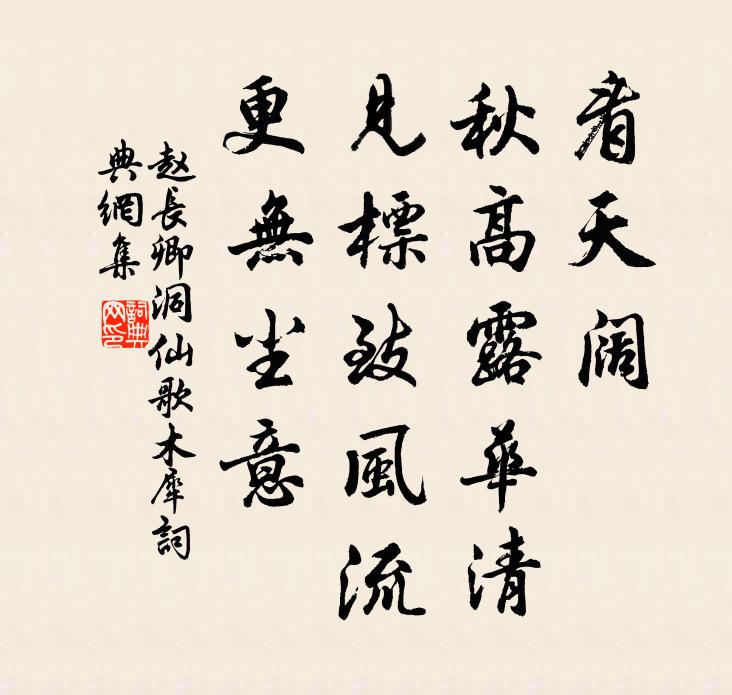 看天阔
秋高露華清
見標致風流
更無尘意
赵長卿洞仙歌木犀詞
典網集
詞典网印